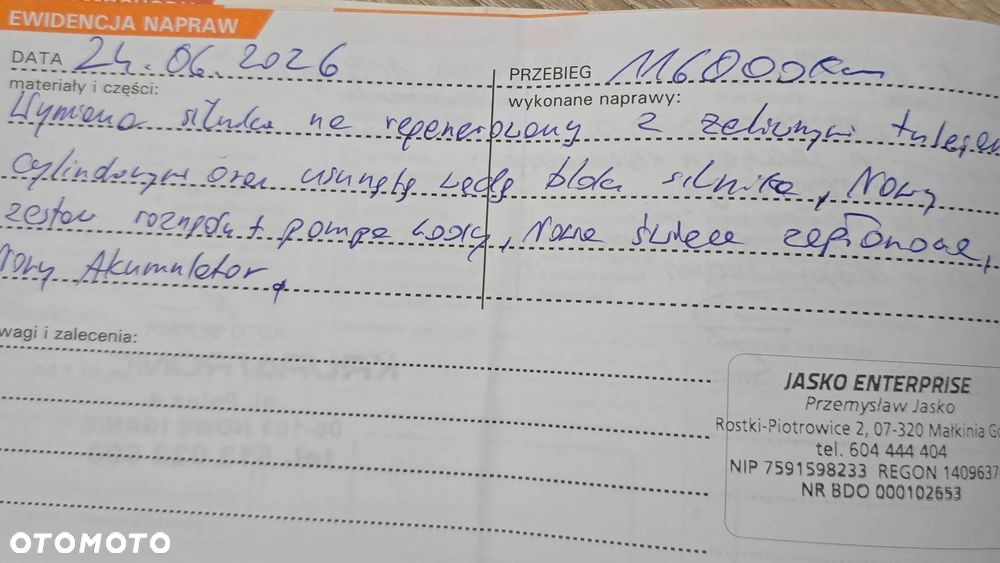 EWIDENCJA NAPRAW
DATA 24.06.2026 PRZEBIEG 116000km
materiały i części: wykonane naprawy:
Wymiana silnika na regenerowany z żeliwnymi tulejami
cylindrowymi oraz usuniętą wadą bloku silnika, Nowy
zestaw rozrządu + pompa wody, Nowe świece zapłonowe,
Nowy Akumulator.
wagi i zalecenia:
JASKO ENTERPRISE
Przemysław Jasko
Rostki-Piotrowice 2, 07-320 Małkinia Gó
tel. 604 444 404
NIP 7591598233 REGON 1409637
NR BDO 000102653
OTOMOTO